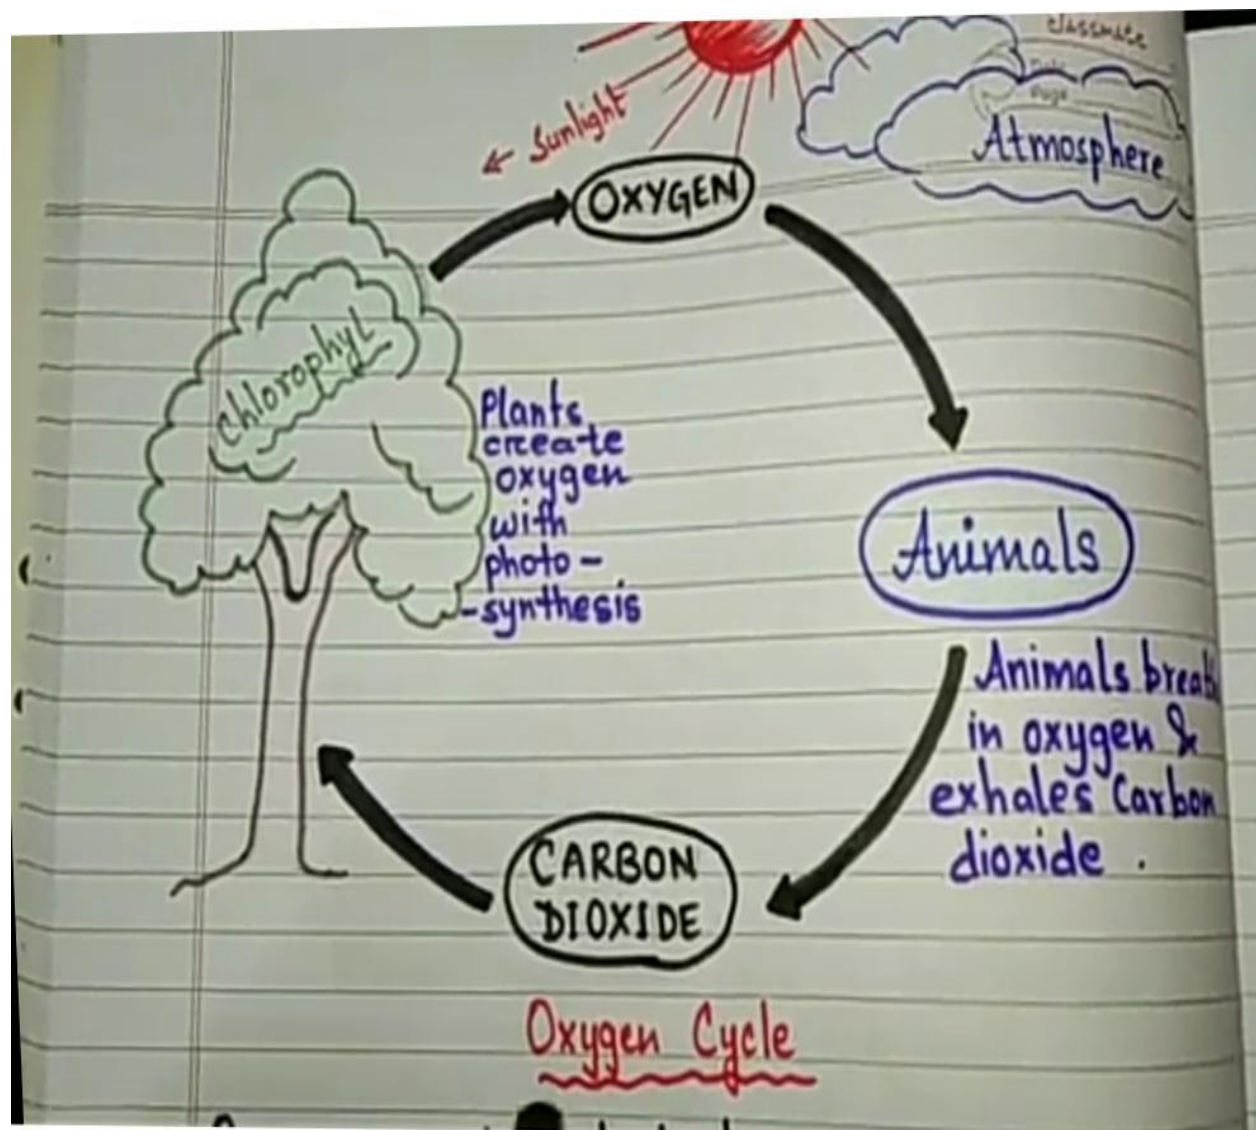 classmate
Date
Page
Atmosphere
← Sunlight
OXYGEN
chlorophyl
Plants
create
oxygen
with
photo-
-synthesis
Animals
Animals breat
in oxygen &
exhales Carbon
dioxide .
CARBON
DIOXIDE
Oxygen Cycle